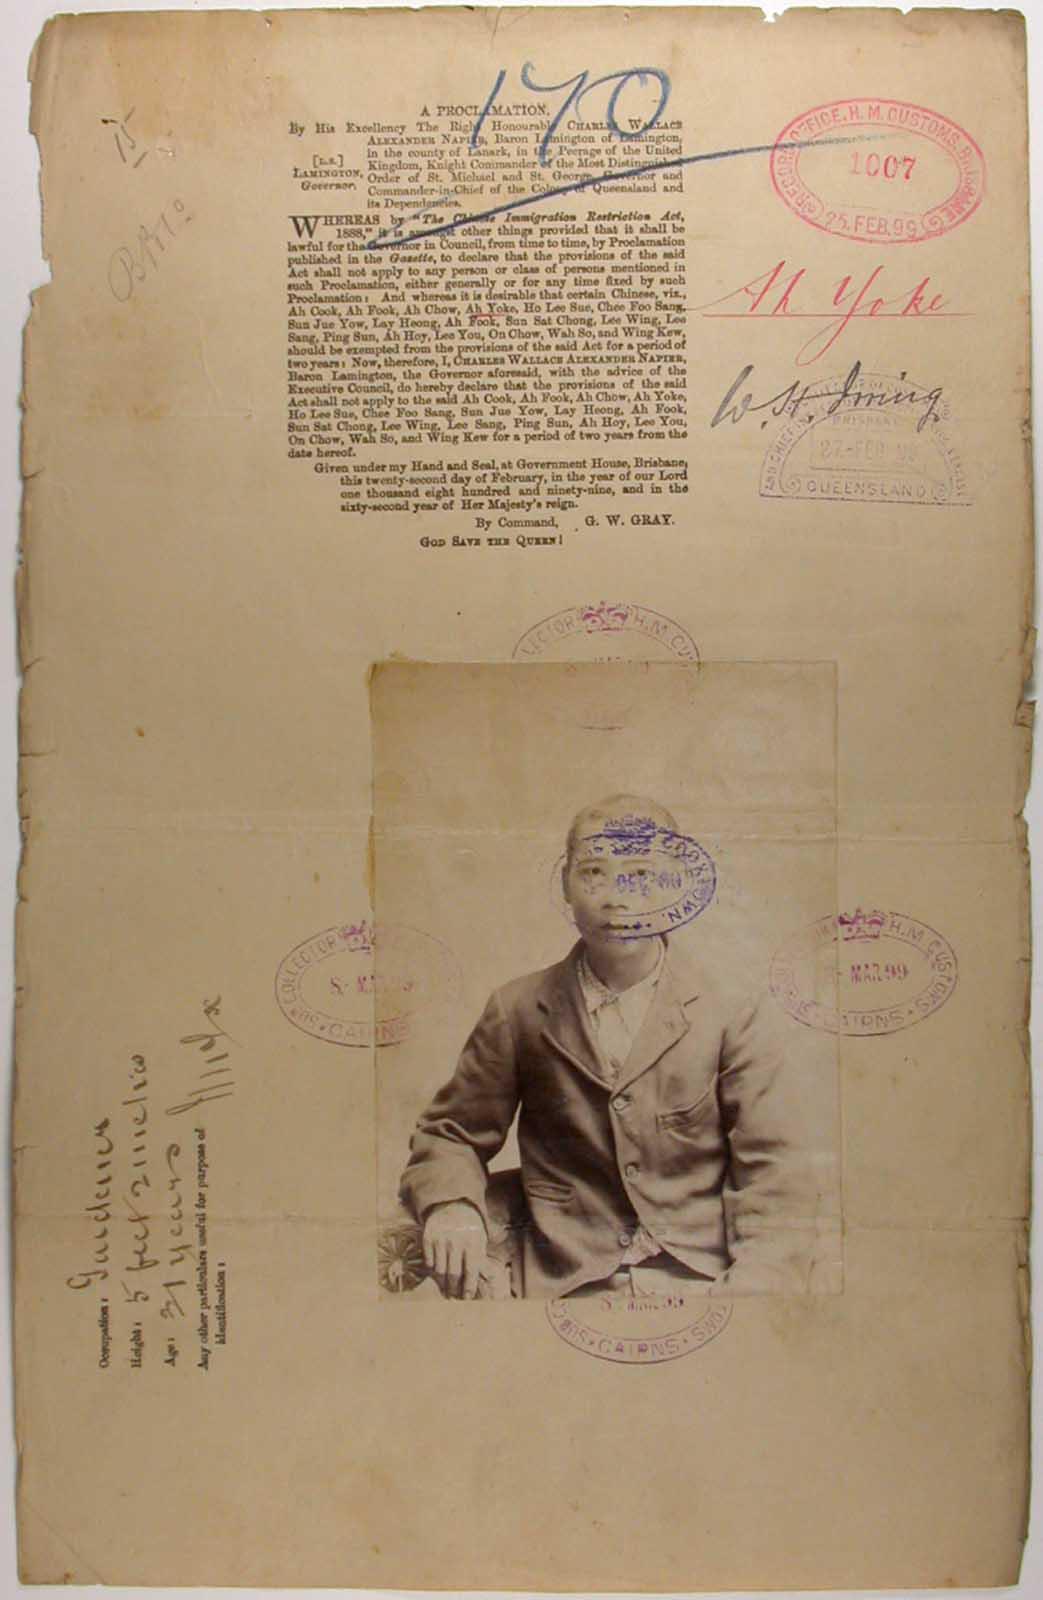 170
15
A PROCLAMATION.
By His Excellency The Right Honourable CHARLES WALLACE
ALEXANDER NAPIER, Baron Lamington of Lamington,
in the county of Lanark, in the Peerage of the United
[L.S.] Kingdom, Knight Commander of the Most Distinguished
LAMINGTON, Order of St. Michael and St. George, Governor and
Governor. Commander-in-Chief of the Colony of Queensland and
its Dependencies.
WHEREAS by "The Chinese Immigration Restriction Act,
1888," it is amongst other things provided that it shall be
lawful for the Governor in Council, from time to time, by Proclamation
published in the Gazette, to declare that the provisions of the said
Act shall not apply to any person or class of persons mentioned in
such Proclamation, either generally or for any time fixed by such
Proclamation: And whereas it is desirable that certain Chinese, viz.,
Ah Cook, Ah Fook, Ah Chow, Ah Yoke, Ho Lee Sue, Chee Foo Sang,
Sun Jue Yow, Lay Heong, Ah Fook, Sun Sat Chong, Lee Wing, Lee
Sang, Ping Sun, Ah Hoy, Lee You, On Chow, Wah So, and Wing Kew,
should be exempted from the provisions of the said Act for a period of
two years: Now, therefore, I, CHARLES WALLACE ALEXANDER NAPIER,
Baron Lamington, the Governor aforesaid, with the advice of the
Executive Council, do hereby declare that the provisions of the said
Act shall not apply to the said Ah Cook, Ah Fook, Ah Chow, Ah Yoke,
Ho Lee Sue, Chee Foo Sang, Sun Jue Yow, Lay Heong, Ah Fook,
Sun Sat Chong, Lee Wing, Lee Sang, Ping Sun, Ah Hoy, Lee You,
On Chow, Wah So, and Wing Kew for a period of two years from the
date hereof.
Given under my Hand and Seal, at Government House, Brisbane,
this twenty-second day of February, in the year of our Lord
one thousand eight hundred and ninety-nine, and in the
sixty-second year of Her Majesty's reign.
By Command, G. W. GRAY.
GOD SAVE THE QUEEN!
RECORD OFFICE, H. M. CUSTOMS, BRISBANE
1007
25. FEB. 99
Ah Yoke
W. H. Irving
BRISBANE
27-FEB 99
QUEENSLAND
COLLECTOR H.M. CUS
COOKTOWN.
COLLECTOR
8- MAR 99
CAIRNS
H.M. CUSTOMS
8- MAR 99
CAIRNS
8- MAR 99
CUSTOMS
CAIRNS
Occupation: Gardener
Height: 5 feet 2 inches
Age: 31 years
Any other particulars useful for purpose of
identification: